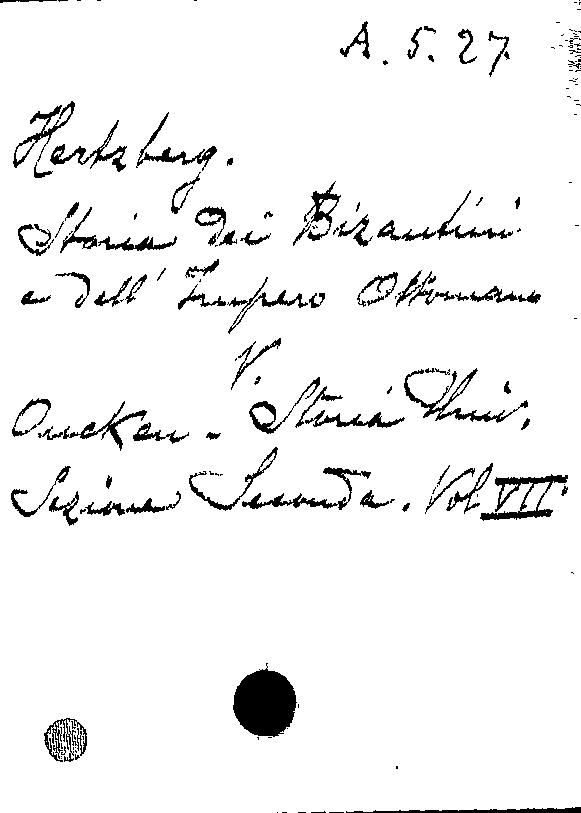 A. 5. 27
Hertzberg.
Storia dei Bizantini
e dell' Impero Ottomano
V.
Oncken - Storia Univ.
Sezione Seconda. Vol VII.